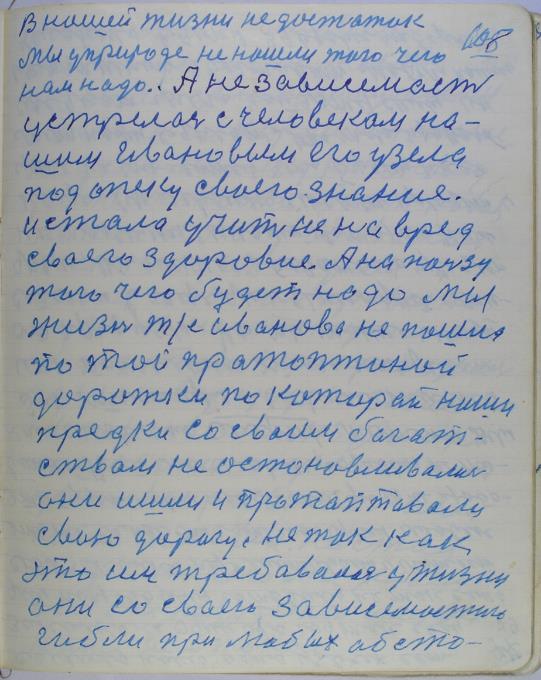 В нашей жизни недостаток
мы уприроде не нашли того чего
168
нам надо.. А не зависемаст
устрелас с человекам на-
шим Ивановым его узела
под опеку своего знание.
и стала учит не на вред
своего здоровие. А наползу
того чего будет надо мы
жизн т/е иванова не пошла
по той пратоптоной
дорожки по которай наши
предки со своим богат-
ствам не остоновливалис
они шили и протаптовали
свою дорогу. не так как
это им требавалас у жизни
они со своего зависемостию
гибли при любых абсто-